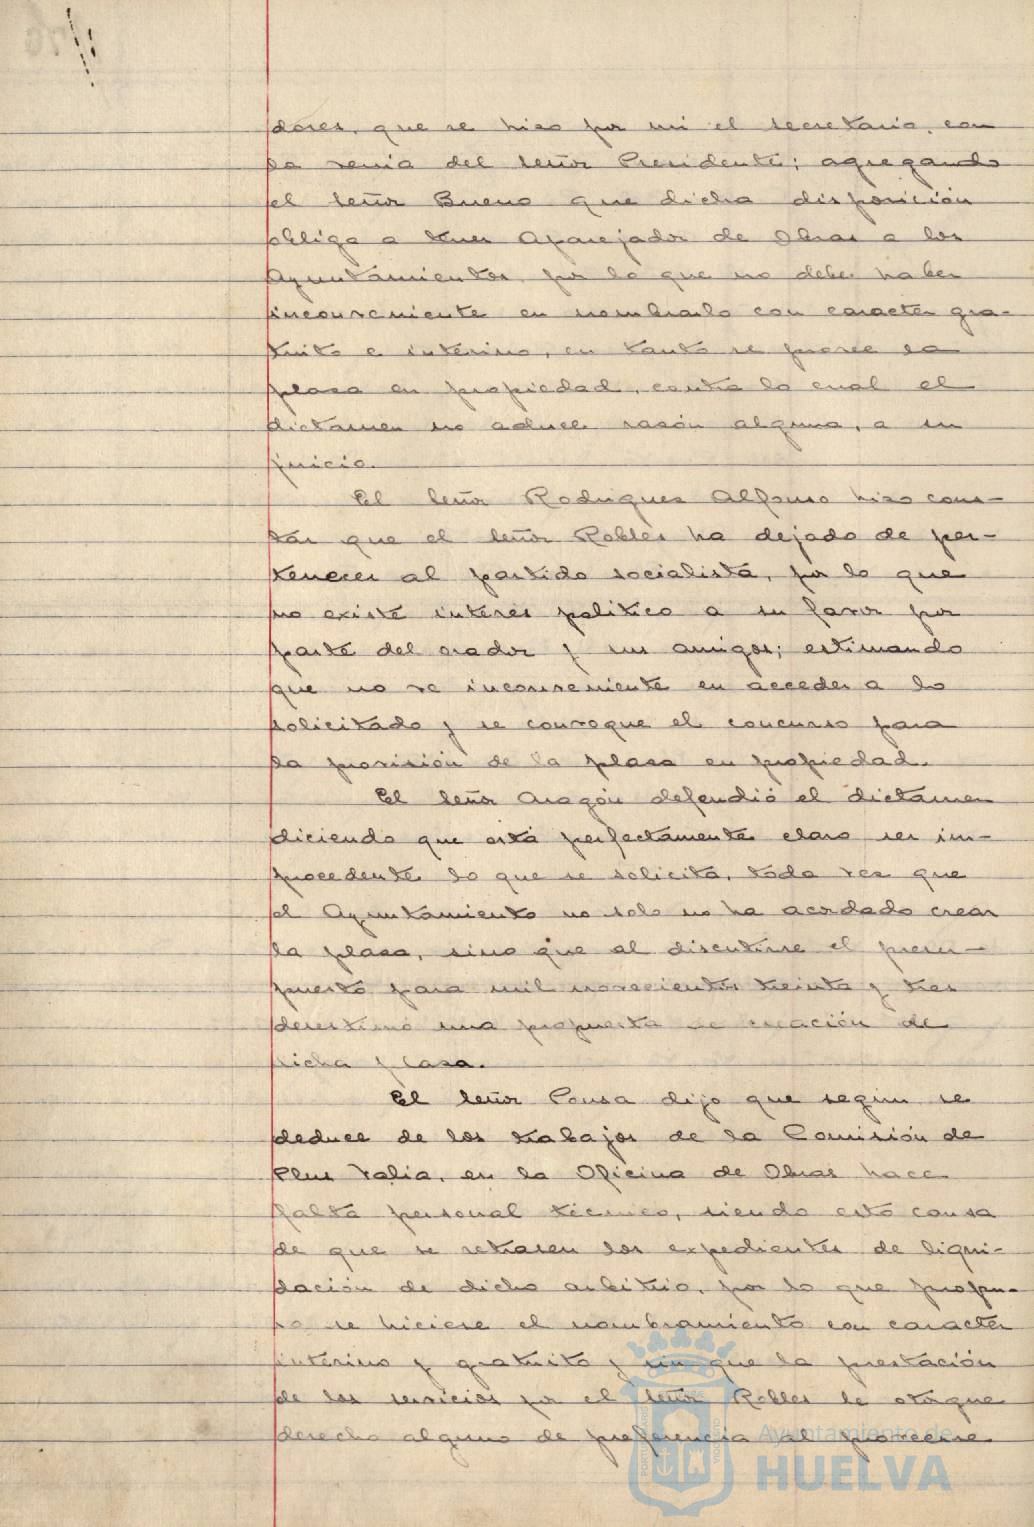 dores, que se hizo por mi el secretario, con
la venia del señor Presidente; agregando
el señor Bueno que dicha disposición
obliga a tener Aparejador de Obras a los
Ayuntamientos, por lo que no debe haber
inconveniente en nombrarlo con caracter gra-
tuito e interino, en tanto se provee la
plaza en propiedad, contra lo cual el
dictamen no aduce razón alguna, a su
juicio.
El señor Rodriguez Alfonso hizo cons-
tar que el señor Robles ha dejado de per-
tenecer al partido socialista, por lo que
no existe interés político a su favor por
parte del orador y sus amigos; estimando
que no ve inconveniente en acceder a lo
solicitado y se convoque el concurso para
la provisión de la plaza en propiedad.
El señor Aragón defendió el dictamen
diciendo que está perfectamente claro ser im-
procedente lo que se solicita, toda vez que
el Ayuntamiento no solo no ha acordado crear
la plaza, sino que al discutirse el presu-
puesto para mil novecientos treinta y tres
desestimó una propuesta de creación de
dicha plaza.
El señor Ponsa dijo que según se
deduce de los trabajos de la Comisión de
Plus Valia, en la Oficina de Obras hace
falta personal técnico, siendo esto causa
de que se retrasen los expedientes de liqui-
dación de dicho arbitrio, por lo que propu-
so se hiciese el nombramiento con caracter
interino y gratuito y sin que la prestación
de los servicios por el señor Robles le otorgue
derecho alguno de preferencia al proveerse
Ayuntamiento de
HUELVA